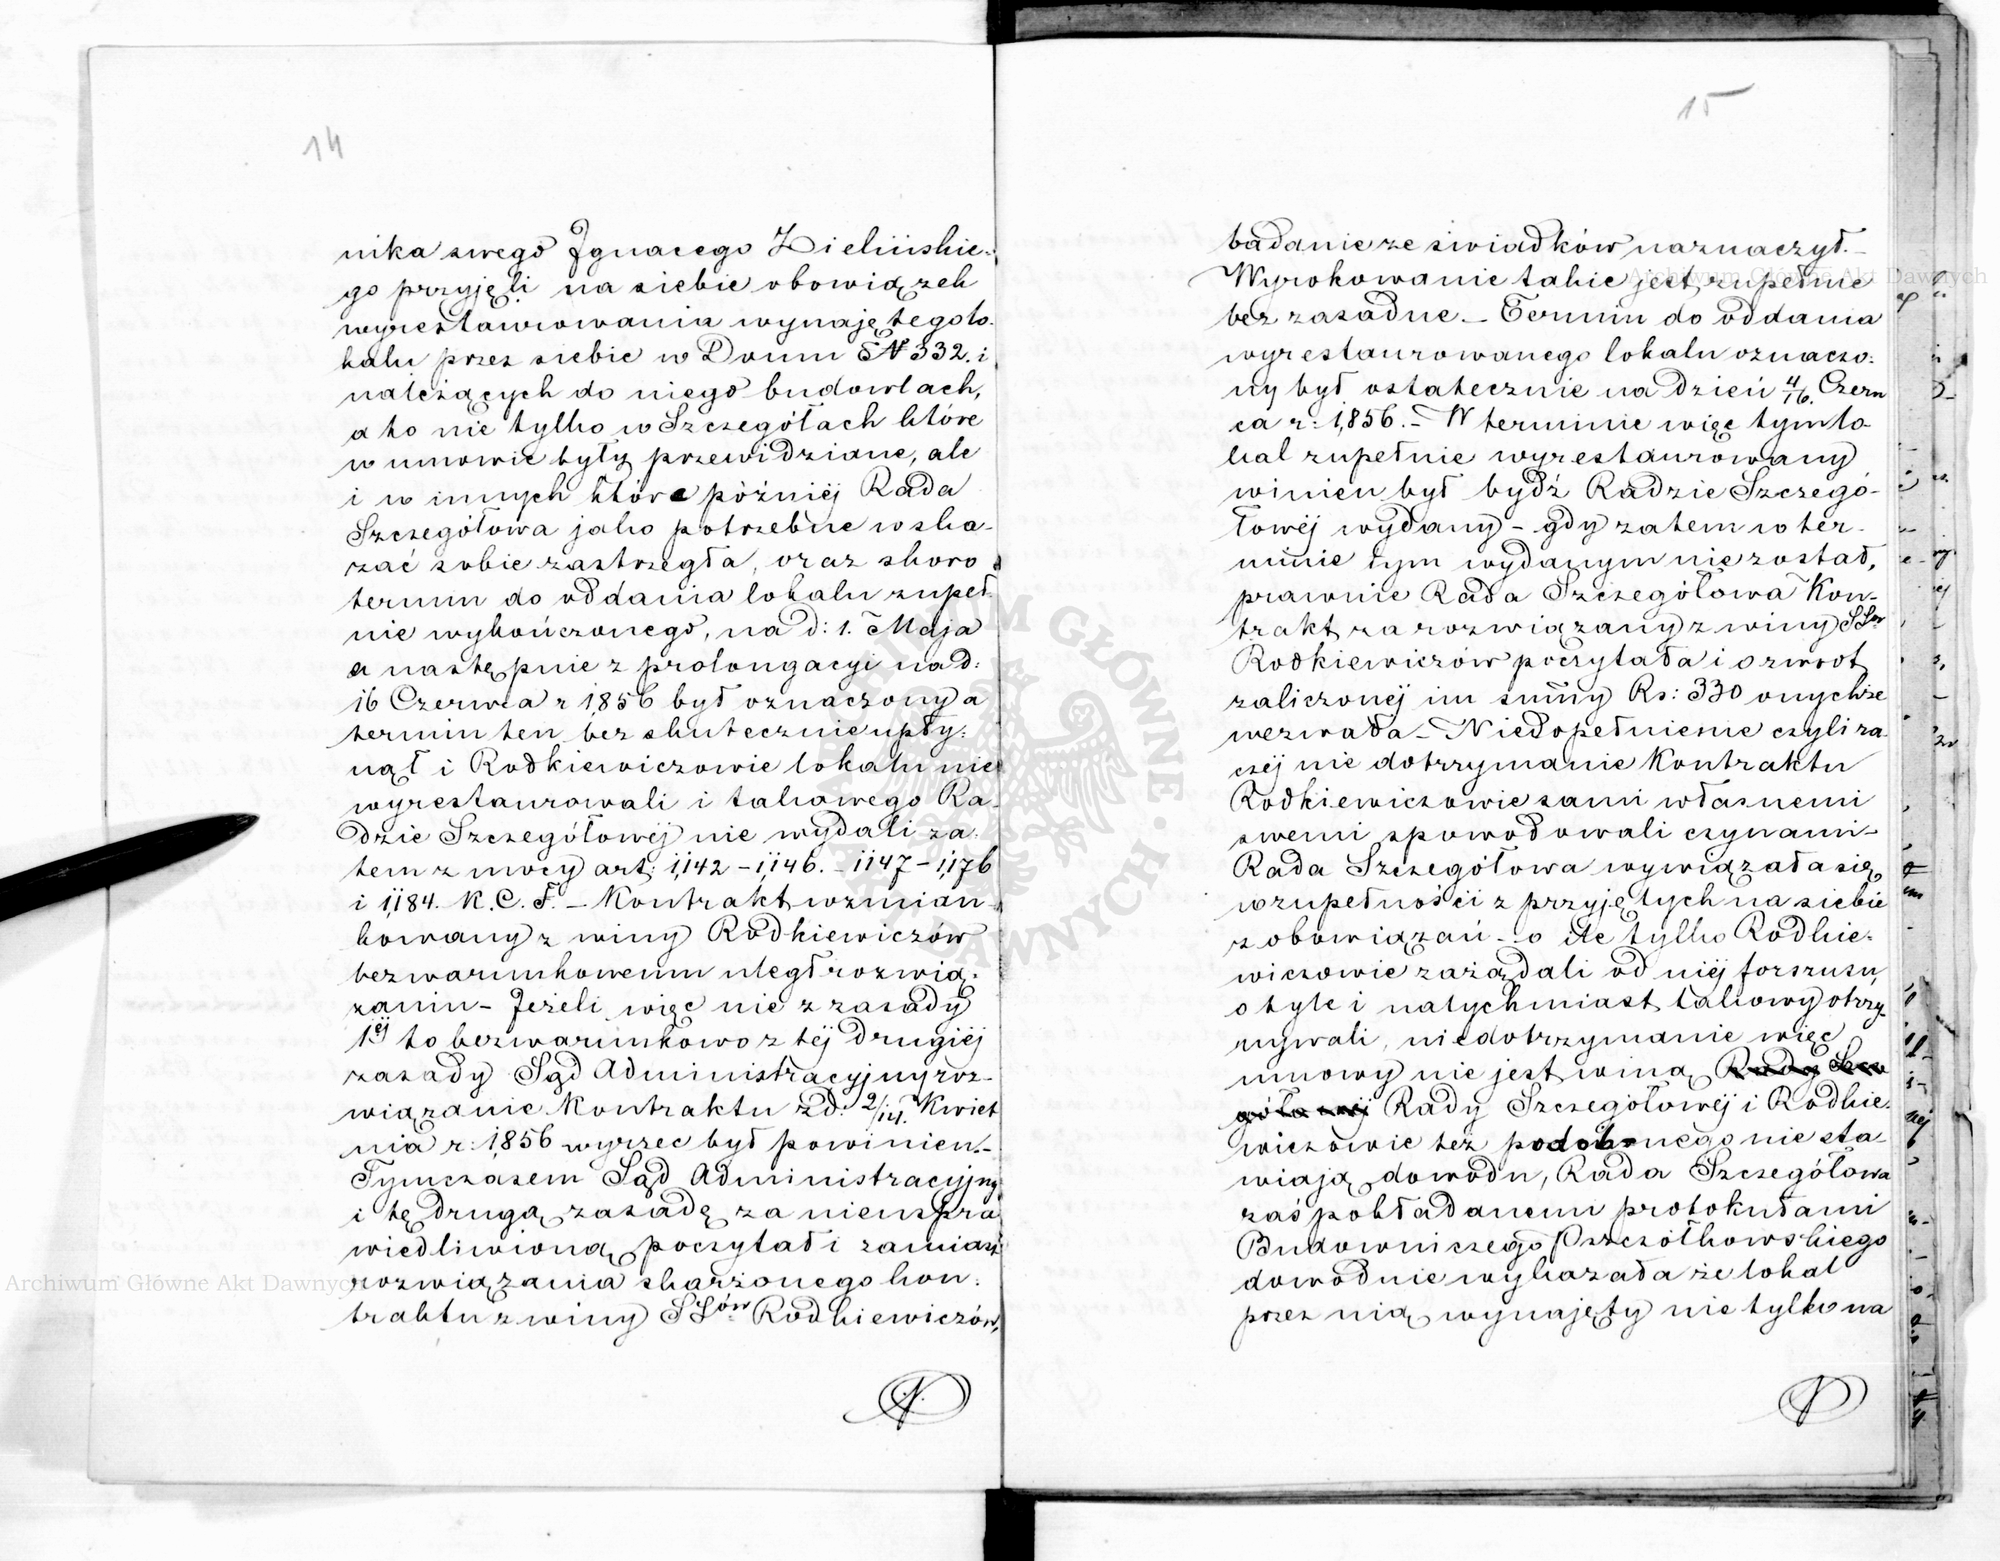 14
nika swego Ignacego Zielińskie-
go przyjęli na siebie obowiązek
wyrestawrowania wynajętego lo-
kalu przez siebie w Domu N 332. i
należących do niego budowlach,
a to nie tylko w Szczegółach które
w umowie były przewidziane, ale
i w innych które późniéj Rada
Szczegółowa jako potrzebne wska-
zać sobie zastrzegła, oraz skoro
termin do oddania lokalu zupeł-
nie wykończonego, na d: 1. Maja
a następnie z prolongacyi na d:
16 Czerwca r 1856 był oznaczony a
termin ten bez skutecznie upły-
nął i Rodkiewiczowie lokalu nie
wyrestaurowali i takowego Ra-
dzie Szczegółowéj nie wydali za-
tem z mocy art: 1142 – 1146. – 1147 – 1176
i 1184. K. C. F. – Kontrakt wzmian-
kowany z winy Rodkiewiczów
bezwarunkowemu uległ rozwią-
zaniu – Jeżeli więc nie z zasady
1éj to bezwarunkowo z téj drugiéj
zasady Sąd Administracyjny roz-
wiązanie Kontraktu z d: 2/14. Kwiet
nia r: 1856 wyrzec był powinien. –
Tymczasem Sąd Administracyjny
i tę drugą zasadę za nieuspra
wiedliwioną poczytał i zamiast
rozwiązania skarżonego kon-
traktu z winy SSów Rodkiewiczów,
15
badanie ze świadków naznaczył. –
Wyrokowanie takie jest zupełnie
bez zasadne. – Termin do oddania
wyrestaurowanego lokalu oznaczo-
ny był ostatecznie na dzień 4/16. Czerw
ca r: 1856. – W terminie więc tym lo-
kal zupełnie wyrestaurowany
winien był bydź Radzie Szczegó-
łowéj wydany – gdy zatem w ter-
minie tym wydanym nie został,
prawnie Rada Szczegółowa Kon-
trakt za rozwiązany z winy SSów
Rodkiewiczów poczytała i o zwrot
zaliczonéj im summy Rs: 330 onychże
wezwała – Niedopełnienie czyli ra-
czéj nie dotrzymanie Kontraktu
Rodkiewiczowie sami własnemi
swemi spowodowali czynami –
Rada Szczegółowa wywiązała się
w zupełności z przyjętych na siebie
zobowiązań – o ile tylko Rodkie-
wiczowie zażądali od niéj forszusu,
o tyle i natychmiast takowy otrzy-
mywali, niedotrzymanie więc
umowy nie jest winą Rady Szcze
gółowéj Rady Szczegółowéj i Rodkie-
wiczowie też podobnego nie sta-
wiają dowodu, Rada Szczegółowa
zaś pokładanemi protokułami
Budowniczego Pszczółkowskiego
dowodnie wykazała że lokal
przez nią wynajęty nie tylko na
Archiwum Główne Akt Dawnych
Archiwum Główne Akt Dawnych